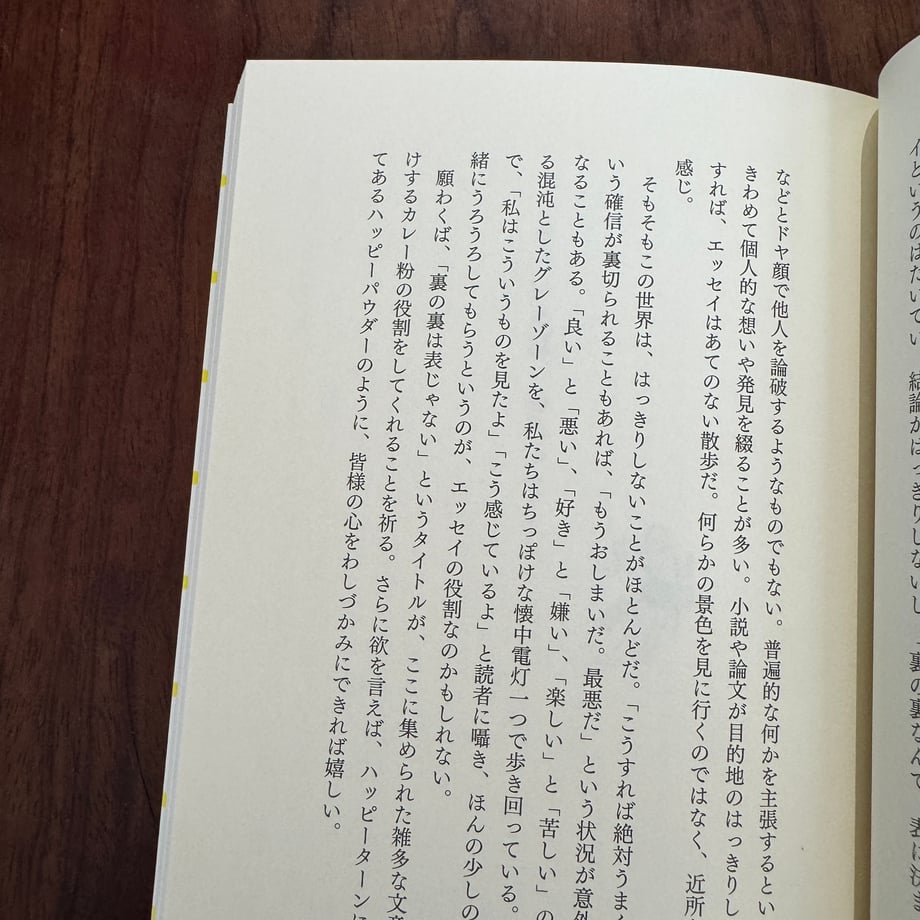 イというのはたいてい、結論がはっきりしないし、「裏の裏なんて、表に決ま
などとドヤ顔で他人を論破するようなものでもない。普遍的な何かを主張するとい
きわめて個人的な想いや発見を綴ることが多い。小説や論文が目的地のはっきりし
すれば、エッセイはあてのない散歩だ。何らかの景色を見に行くのではなく、近所
感じ。
そもそもこの世界は、はっきりしないことがほとんどだ。「こうすれば絶対うまく
いう確信が裏切られることもあれば、「もうおしまいだ。最悪だ」という状況が意外
なることもある。「良い」と「悪い」、「好き」と「嫌い」、「楽しい」と「苦しい」の
る混沌としたグレーゾーンを、私たちはちっぽけな懐中電灯一つで歩き回っている。
で、「私はこういうものを見たよ」「こう感じているよ」と読者に囁き、ほんの少しの
緒にうろうろしてもらうというのが、エッセイの役割なのかもしれない。
願わくば、「裏の裏は表じゃない」というタイトルが、ここに集められた雑多な文章
けするカレー粉の役割をしてくれることを祈る。さらに欲を言えば、ハッピーターンに
てあるハッピーパウダーのように、皆様の心をわしづかみにできれば嬉しい。